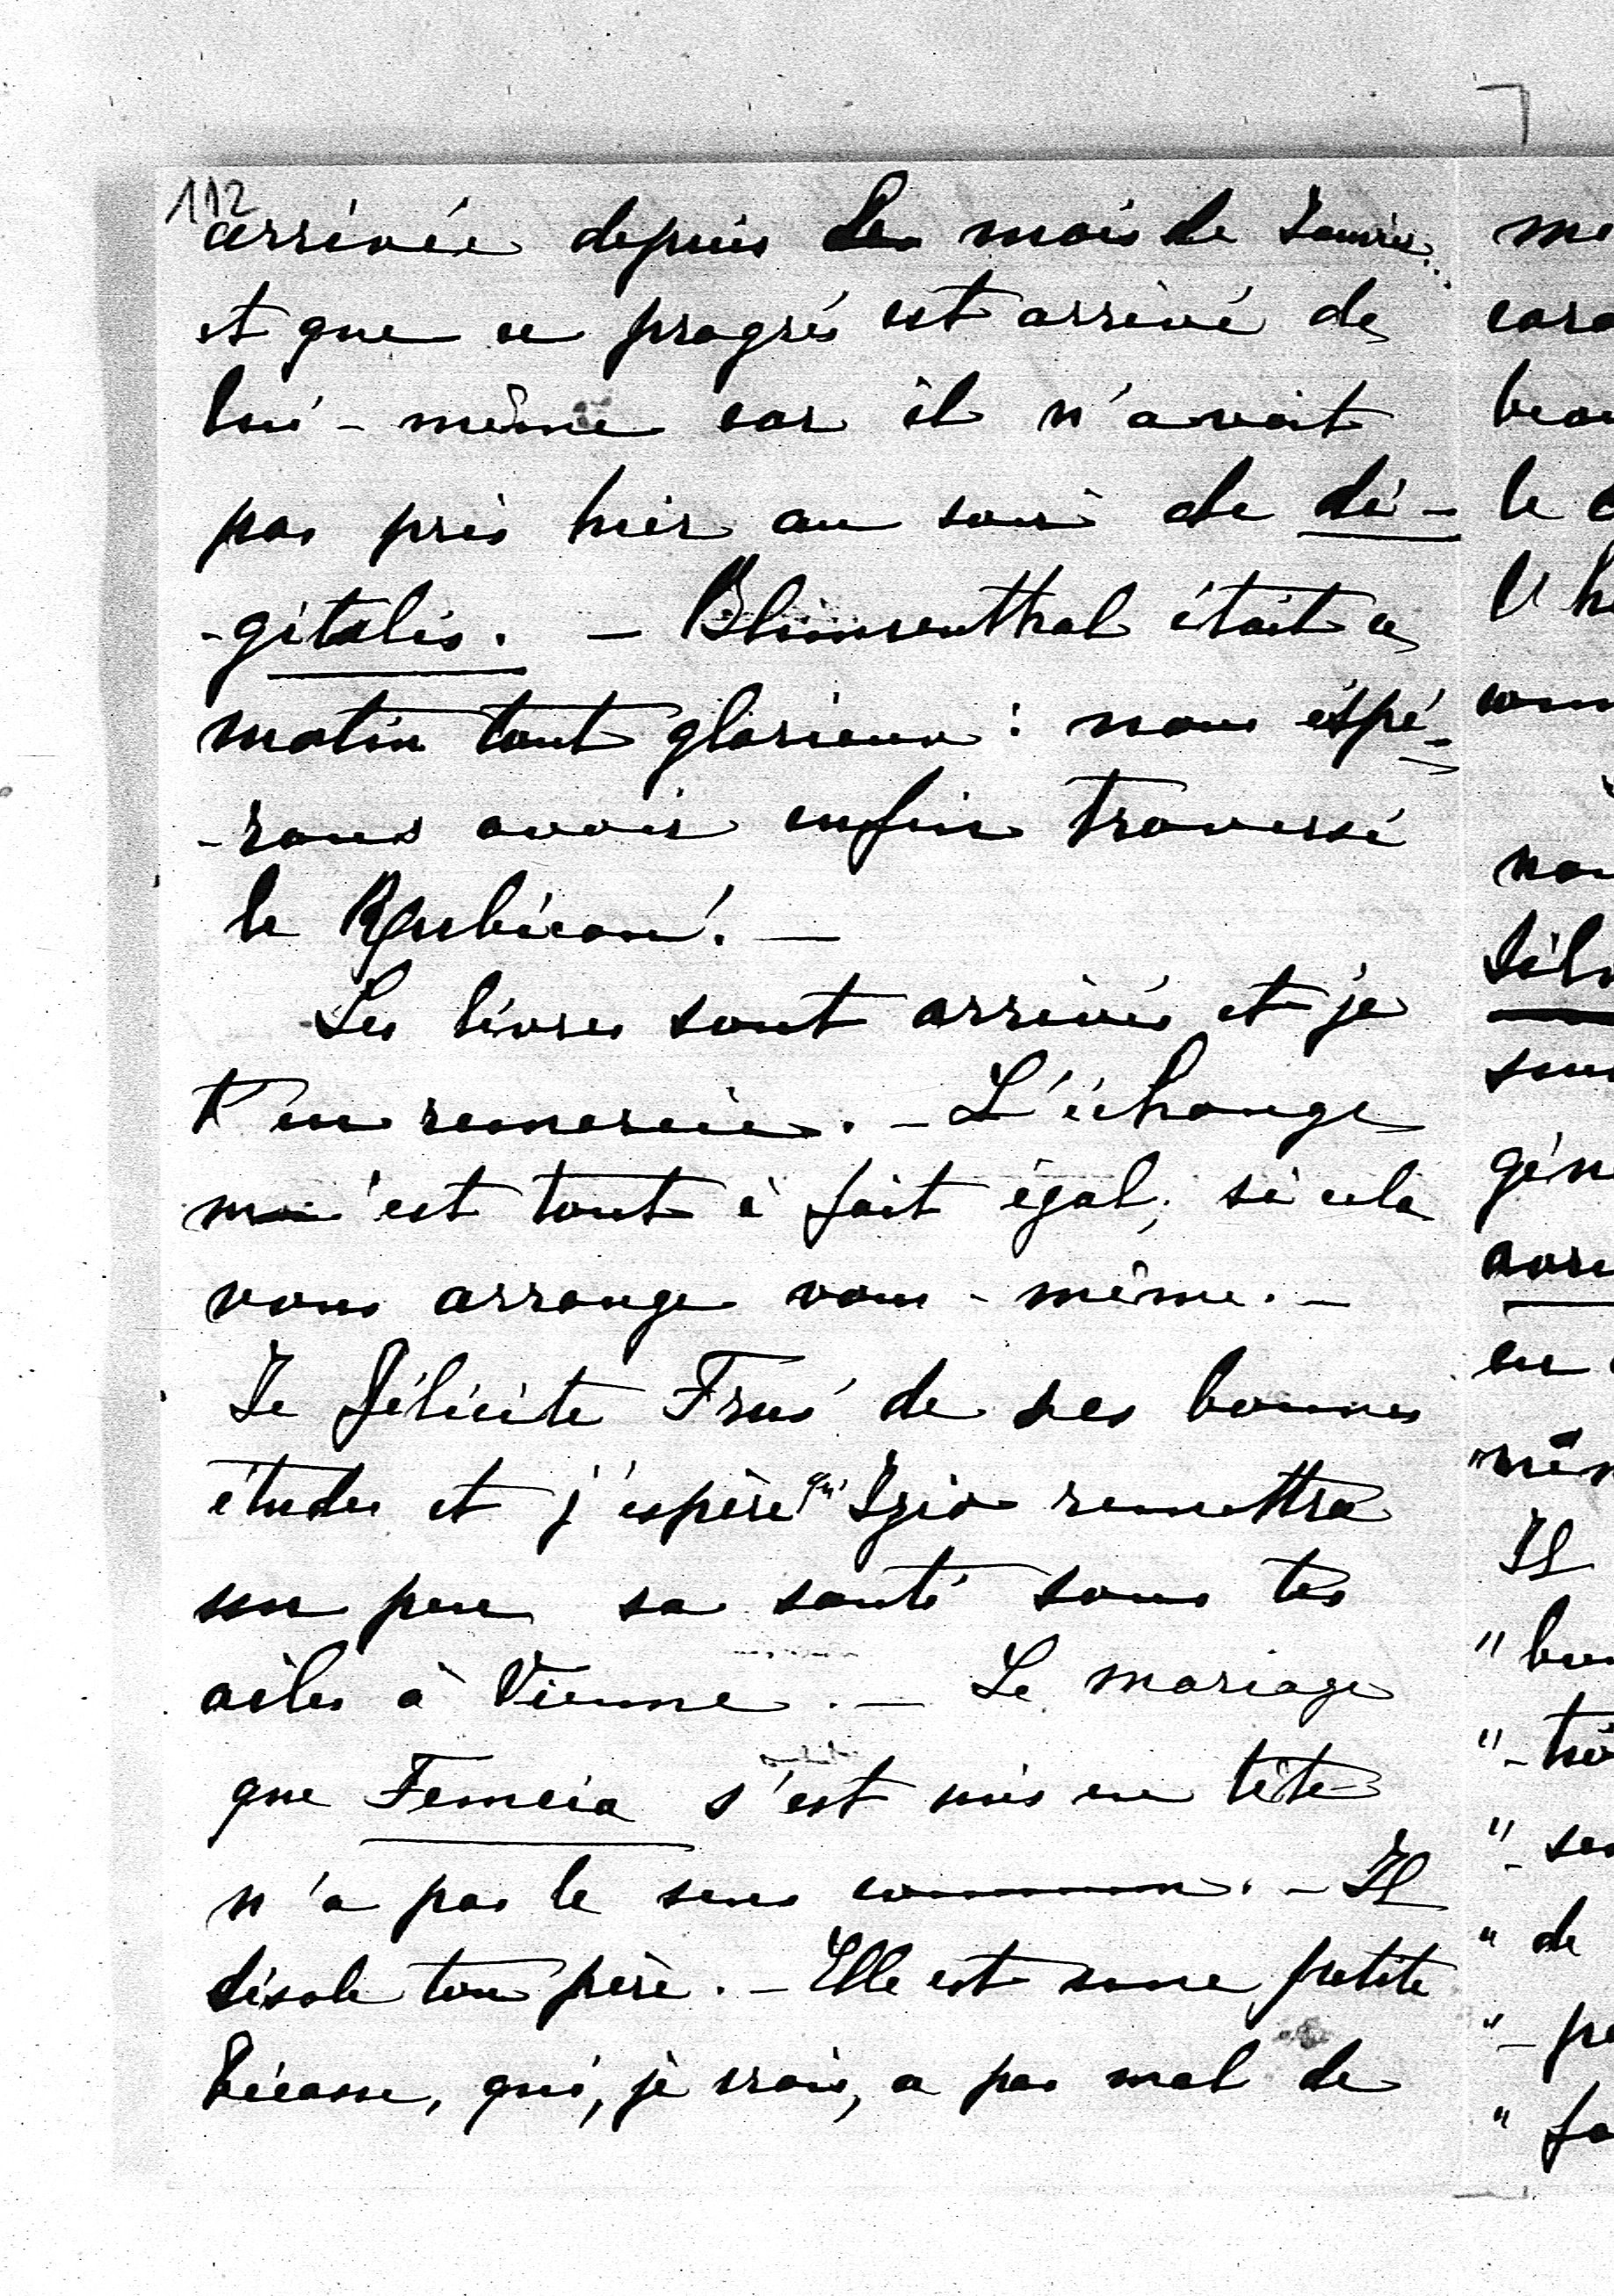 112
arrivée depuis le mois de Janvier
et que ce progrès est arrivé de
lui-même car il n'avait
pas pris hier au soir de di-
-gitalis. — Blumenthal était ce
matin tout glorieux : nous espé-
-rons avoir enfin traversé
le Rubicon! —
Les livres sont arrivés et je
t'en remercie. — L'échange
m'est tout à fait égal, si cela
vous arrange vous-même. —
Je félicite Fru de ses bonnes
études et j'espère qu' Izio remettra
un peu sa santé sous tes
ailes à Vienne. — Le mariage
que Femcia s'est mis en tête
n'a pas le sens commun. — Il
désole ton père. — Elle est une petite
bécasse, qui, je crois, a pas mal de